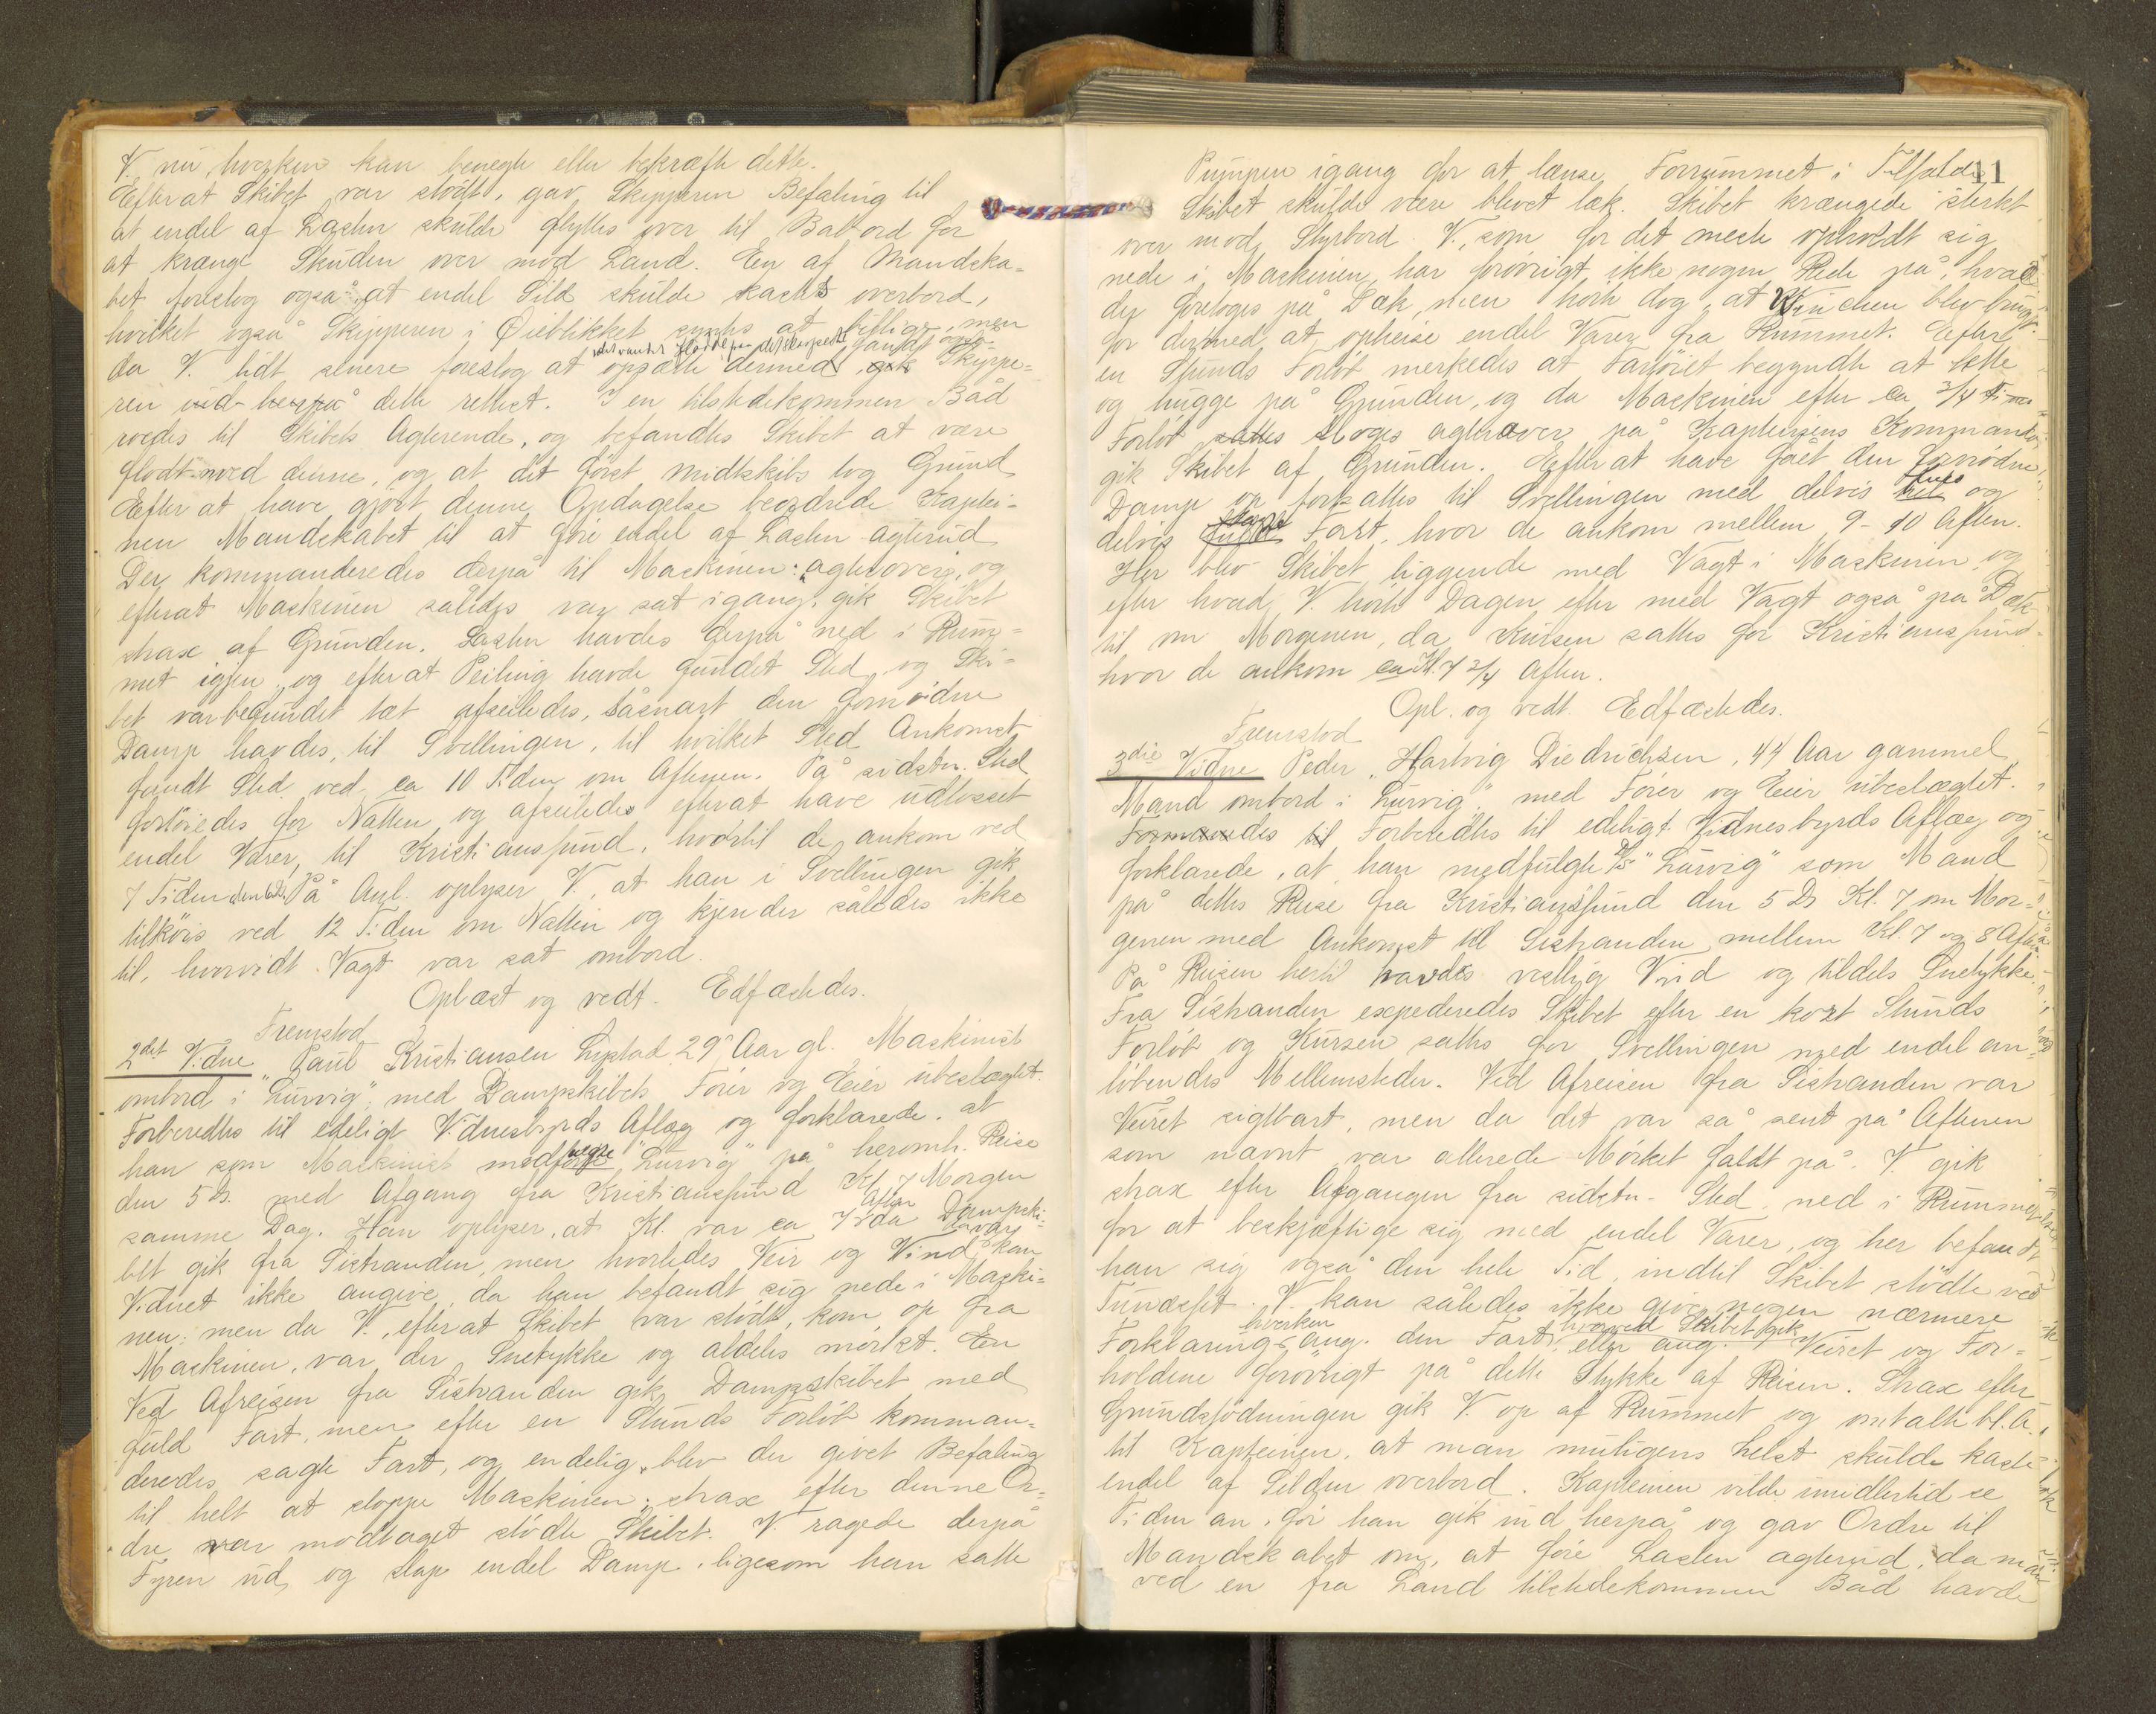 V. nu hverken kan benegte eller bekræfte dette.
Efterat Skibet var stødt, gav Skipperen Befaling til
at endel af Lasten skulde flyttes over til Babord for
at krænge Skuden over mod Land. En af Mandska-
bet foreslog også at endel Sild skulde kastes overbord,
hvilket også Skipperen i Øieblikket syntes at billige, men
da V. lidt senere foreslog at opsætte dermed, fandt også Skippe-
ren dette rettest. I en tilstedekommen Båd
roedes til Skibets Agterende, og befandtes Skibet at være
flodt med denne, og at det først midtskibs tog Grund
Efter at have gjort denne Opdagelse beordrede Kaptei-
nen Mandskabet til at føre endel af Lasten agterud
Der kommanderedes derpå til Maskinen: "agterover", og
efterat Maskinen således var sat igang, gik Skibet
strax af Grunden. Lasten havdes derpå ned i Rum-
met igjen, og efterat Peiling havde fundet Sted, og Ski-
bet var befundet tæt afseiledes, såsnart den fornødne
Damp havdes, til Svellingen, til hvilket Sted Ankomst
fandt Sted ved ca 10 Tiden om Aftenen. På sidstn. Sted
fortøiedes for Natten og afseiledes efterat have udlosset
endel Varer, til Kristianssund, hvortil de ankom ved
7 Tiden På Anl. oplyser V., at han i Svellingen gik
tilkøis ved 12 Tiden om Natten og kjender således ikke
til, hvorvidt Vagt var sat ombord.
Oplæst og vedt. Edfæstedes.
Fremstod
2det Vidne Paul Kristiansen Lystad 29 Aar gl. Maskinist
ombord i "Lurvig", med Dampskibets Fører og Eier ubeslægtet.
Forberedtes til edeligt Vidnesbyrds Aflæg og forklarede, at
han som Maskinist medfulgte "Lurvig" på heromh. Reise
den 5 ds. med Afgang fra Kristianssund Kl. 7 Morgen
samme Dag. Han oplyser, at Kl. var ca 7 Aften da Dampski-
bet gik fra Sistranden, men hvorledes Veir og Vind da var, kan
Vidnet ikke angive, da han befandt sig nede i Maski-
nen; men da V., efterat Skibet var stødt, kom op fra
Maskinen, var der Snetykke og aldeles mørkt. En
Ved Afreisen fra Sistranden gik Dampskibet med
fuld Fart, men efter en Stunds Forløb komman-
deredes sagte Fart, og endelig blev der givet Befaling
til helt at stoppe Maskinen; strax efter denne Or-
dre var modtaget stødte Skibet. V. ragede derpå
Fyren ud, og slap endel Damp, ligesom han satte
11
Pumpen igang for at lænse Forrummet i Tilfælde
Skibet skulde være blevet læk. Skibet krængede stærkt
over mod Styrbord. V., som for det meste opholdt sig
nede i Maskinen, har forøvrigt ikke nogen Rede på, hvad
der foretoges på Dæk, men hørte dog, at Winchen blev brugt
for dermed at opheise endel Varer fra Rummet. Efter
en Stunds Forløb merkedes at Fartøiet begyndte at sætte
og hugge på Grunden, og da Maskinen efter ca 3/4 Times
Forløb sattes sloges agterover på Kapteinens Kommando,
gik Skibet af Grunden. Efter at have fået den fornødne
Damp op fortsattes til Svellingen med delvis og
delvis Fart, hvor de ankom mellem 9-10 Aften.
Her blev Skibet liggende med Vagt i Maskinen, og
efter hvad V. hørte Dagen efter med Vagt også på Dæk
til om Morgenen, da Kursen sattes for Kristianssund
hvor de ankom ca Kl. 7 3/4 Aften.
Opl. og vedt. Edfæstedes.
Fremstod
3die Vidne Peder Hartvig Diedrichsen, 44 Aar gammel,
Mand ombord i "Lurvig", med Fører og Eier ubeslægtet.
Forberedtes til edeligt Vidnesbyrds Aflæg og
forklarede, at han medfulgte D/S "Lurvig" som Mand
på dettes Reise fra Kristianssund den 5 ds Kl. 7 om Mor-
genen med Ankomst til Sistranden mellem Kl. 7 og 8 Aften
På Reisen hertil havdes vestlig Vind og tildels Snetykke.
Fra Sistranden expederedes Skibet efter en kort Stunds
Forløb og Kursen sattes for Svellingen med endel an-
løbendes Mellemsteder. Ved Afreisen fra Sistranden var
Veiret sigtbart, men da det var så sent på Aftenen
som nævnt var allerede Mørket faldt på. V. gik
strax efter Afgangen fra sidstn. Sted ned i Rummet
for at beskjæftige sig med endel Varer, og her befandt
han sig også den hele Tid, indtil Skibet stødte ved
Tundsfet. V. kan således ikke give nogen nærmere
Forklaring hverken ang. den Fart, hvormed Skibet gik eller ang. Veiret og For-
holdene forøvrigt på dette Stykke af Reisen. Strax efter
Grundstødningen gik V. op af Rummet og omtalte bl. a.
til Kapteinen, at man muligens helst skulde kaste
endel af Silden overbord. Kapteinen vilde imidlertid se
Tiden an, før han gik ind herpå, og gav Ordre til
Mandskabet om, at føre Lasten agterud, da man
ved en fra Land tilstedekommen Båd havde